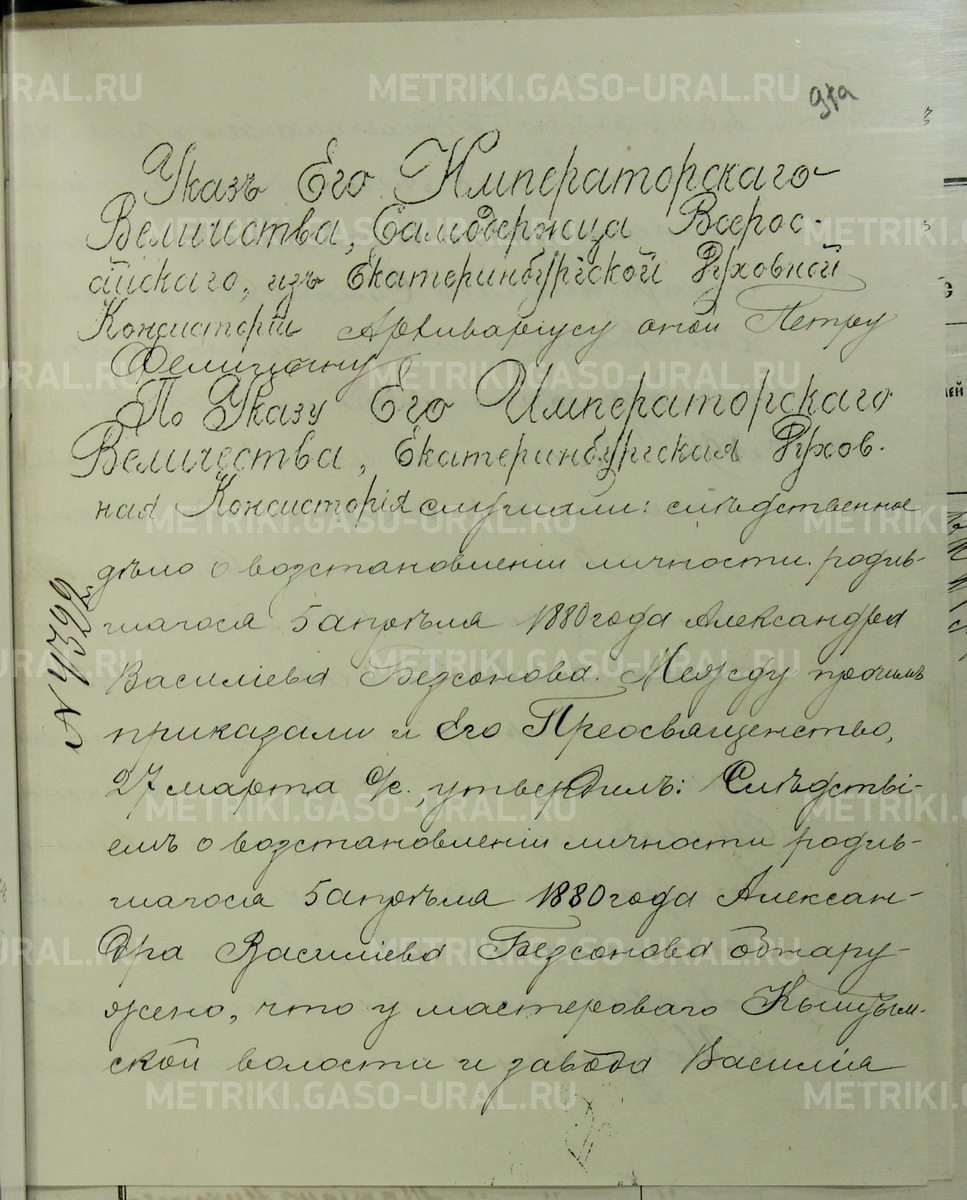 METRIKI.GASO-URAL.RU
91а
Указъ Его Императорскаго
Величества, Самодержца Всерос-
сійскаго, изъ Екатеринбургской Духовной
Консисторіи Архиваріусу оной Петру
По Указу Его Императорскаго
Величества, Екатеринбургская Духов-
ная Консисторія слушали: слѣдственное
дѣло о возстановленіи личности родив-
шагося 5 апрѣля 1880 года Александра
Василіева Безсонова. Между прочимъ
приказали и Его Преосвященство,
27 марта с/г., утвердилъ: Слѣдстві-
емъ о возстановленіи личности родив-
шагося 5 апрѣля 1880 года Алексан-
дра Василіева Безсонова обнару-
жено, что у мастероваго Кыштым-
ской волости и завода Василія
№ 4392